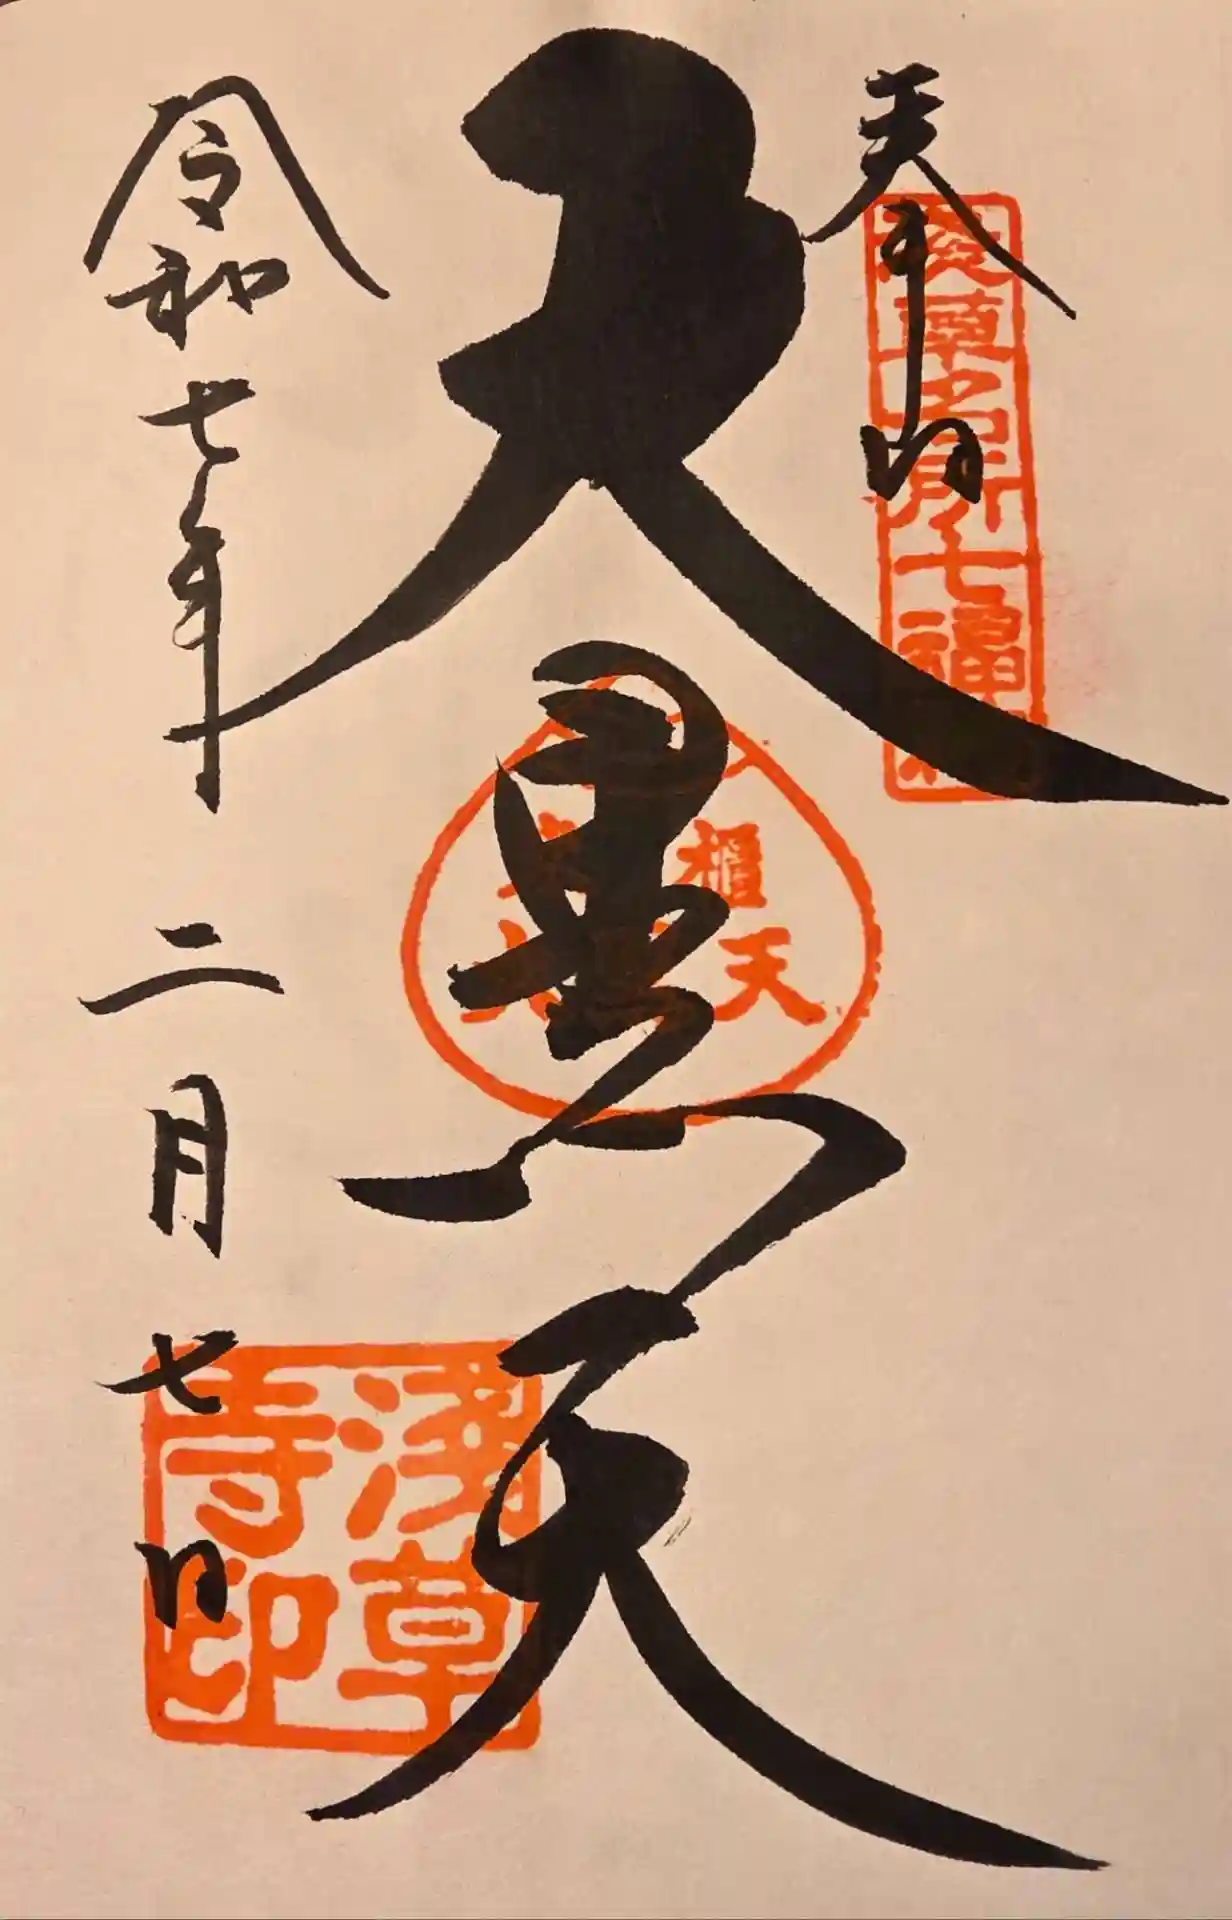 奉拝
浅草名所七福神
大黒天
淺草寺印
令和七年二月七日